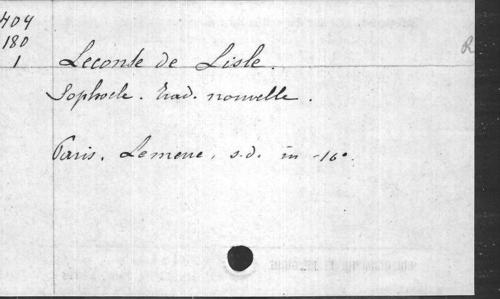 404
180
1
Leconte de Lisle.
Sophocle. Trad. nouvelle.
Paris. Lemerre, s.d. in -16º.
R